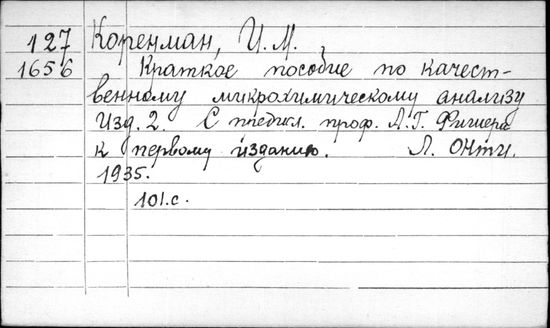 127 Коренман, И. М.
1656 Краткое пособие по качест-
венному микрохимическому анализу
Изд. 2. С предисл. проф. А. Г. Фишера
к первому изданию. Л. ОНТИ.
1935.
101 с.